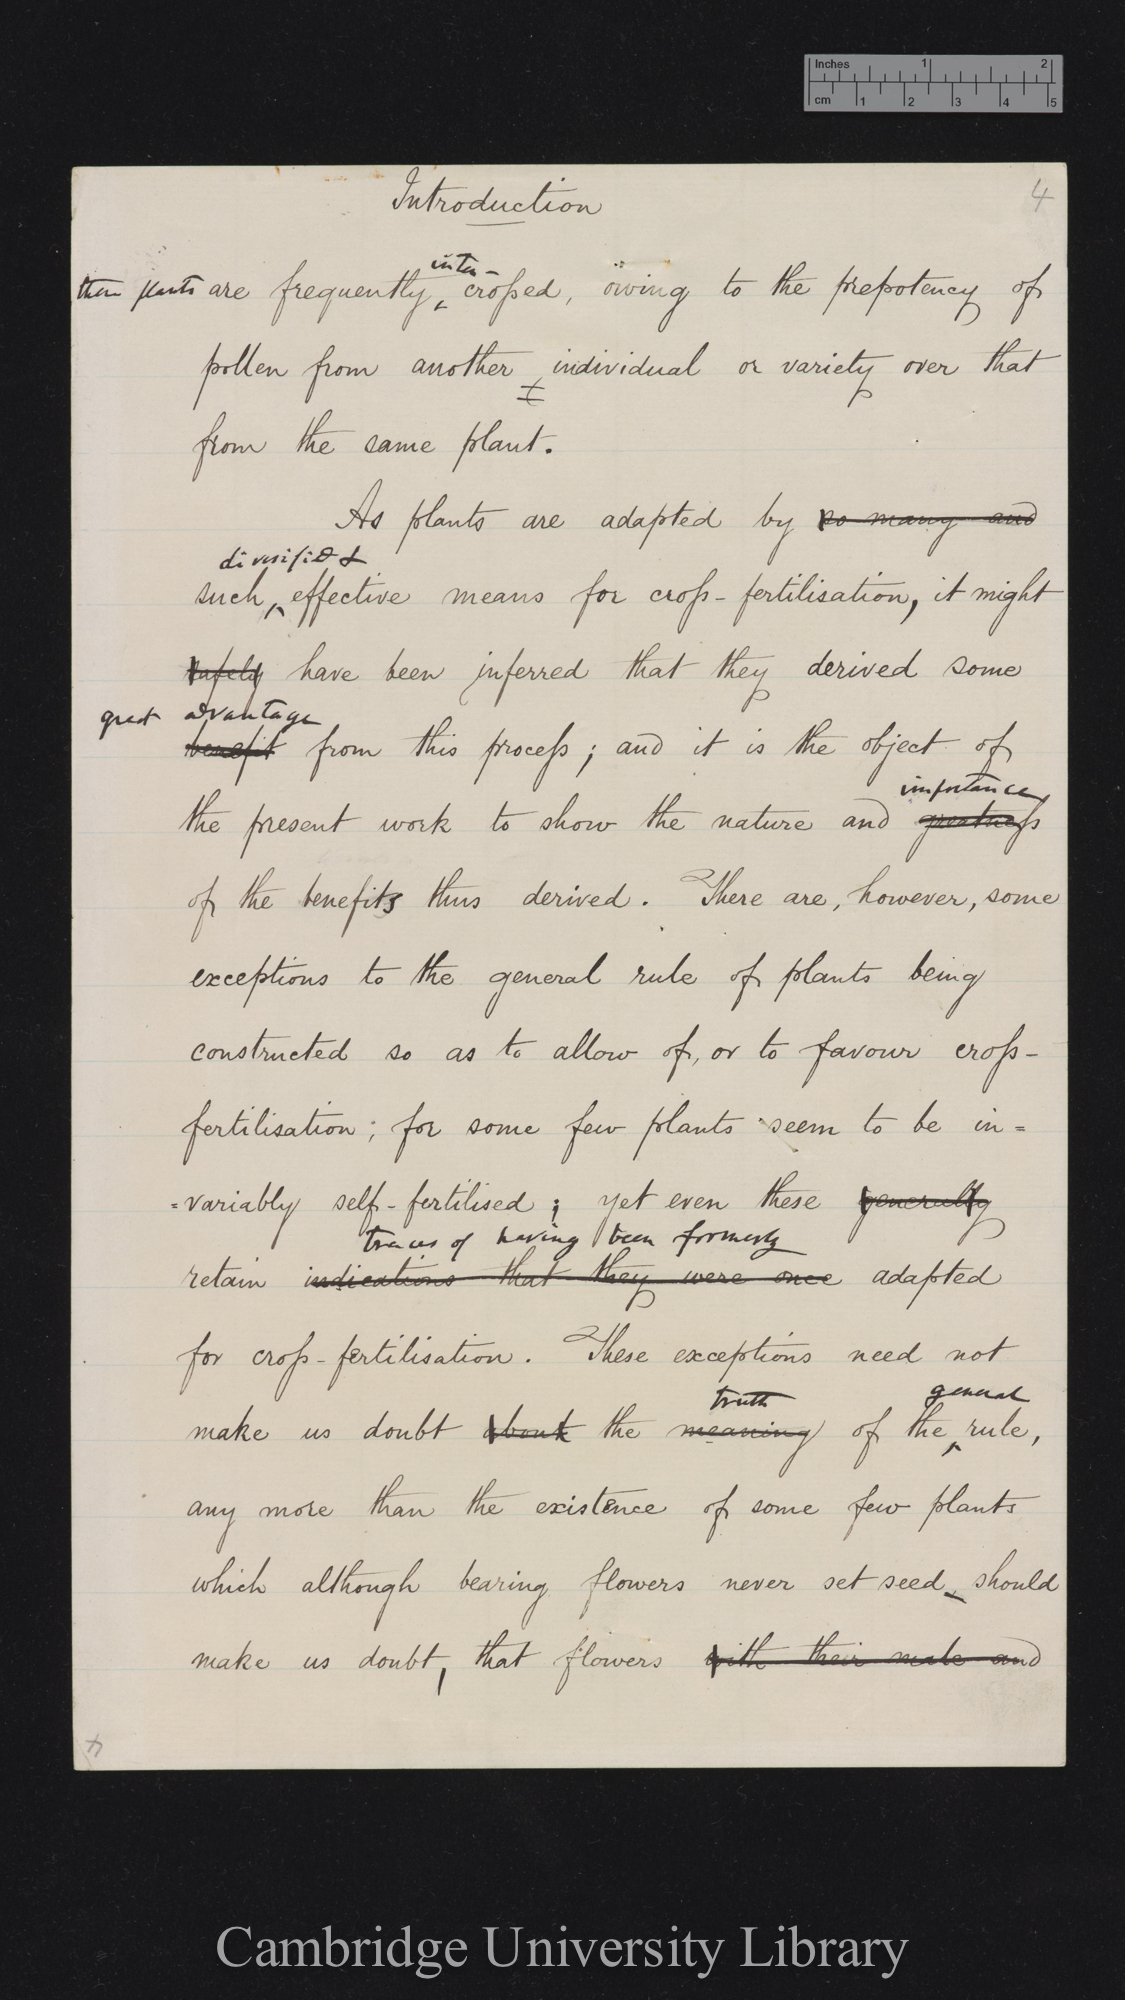 Inches 1 2
cm 1 2 3 4 5
Introduction
4
inter-
their plants are frequently crossed, owing to the prepotency of
pollen from another individual or variety over that
from the same plant.
As plants are adapted by so many and
diversified &
such effective means for cross-fertilisation, it might
safely have been inferred that they derived some
great advantage
benefit from this process; and it is the object of
importance
the present work to show the nature and greatness
of the benefits thus derived. There are, however, some
exceptions to the general rule of plants being
constructed so as to allow of, or to favour cross-
fertilisation; for some few plants seem to be in=
=variably self-fertilised; yet even these generally
traces of having been formerly
retain indications that they were once adapted
for cross-fertilisation. These exceptions need not
truth general
make us doubt about the meaning of the rule,
any more than the existence of some few plants
which although bearing flowers never set seed, should
make us doubt, that flowers with their male and
4
Cambridge University Library